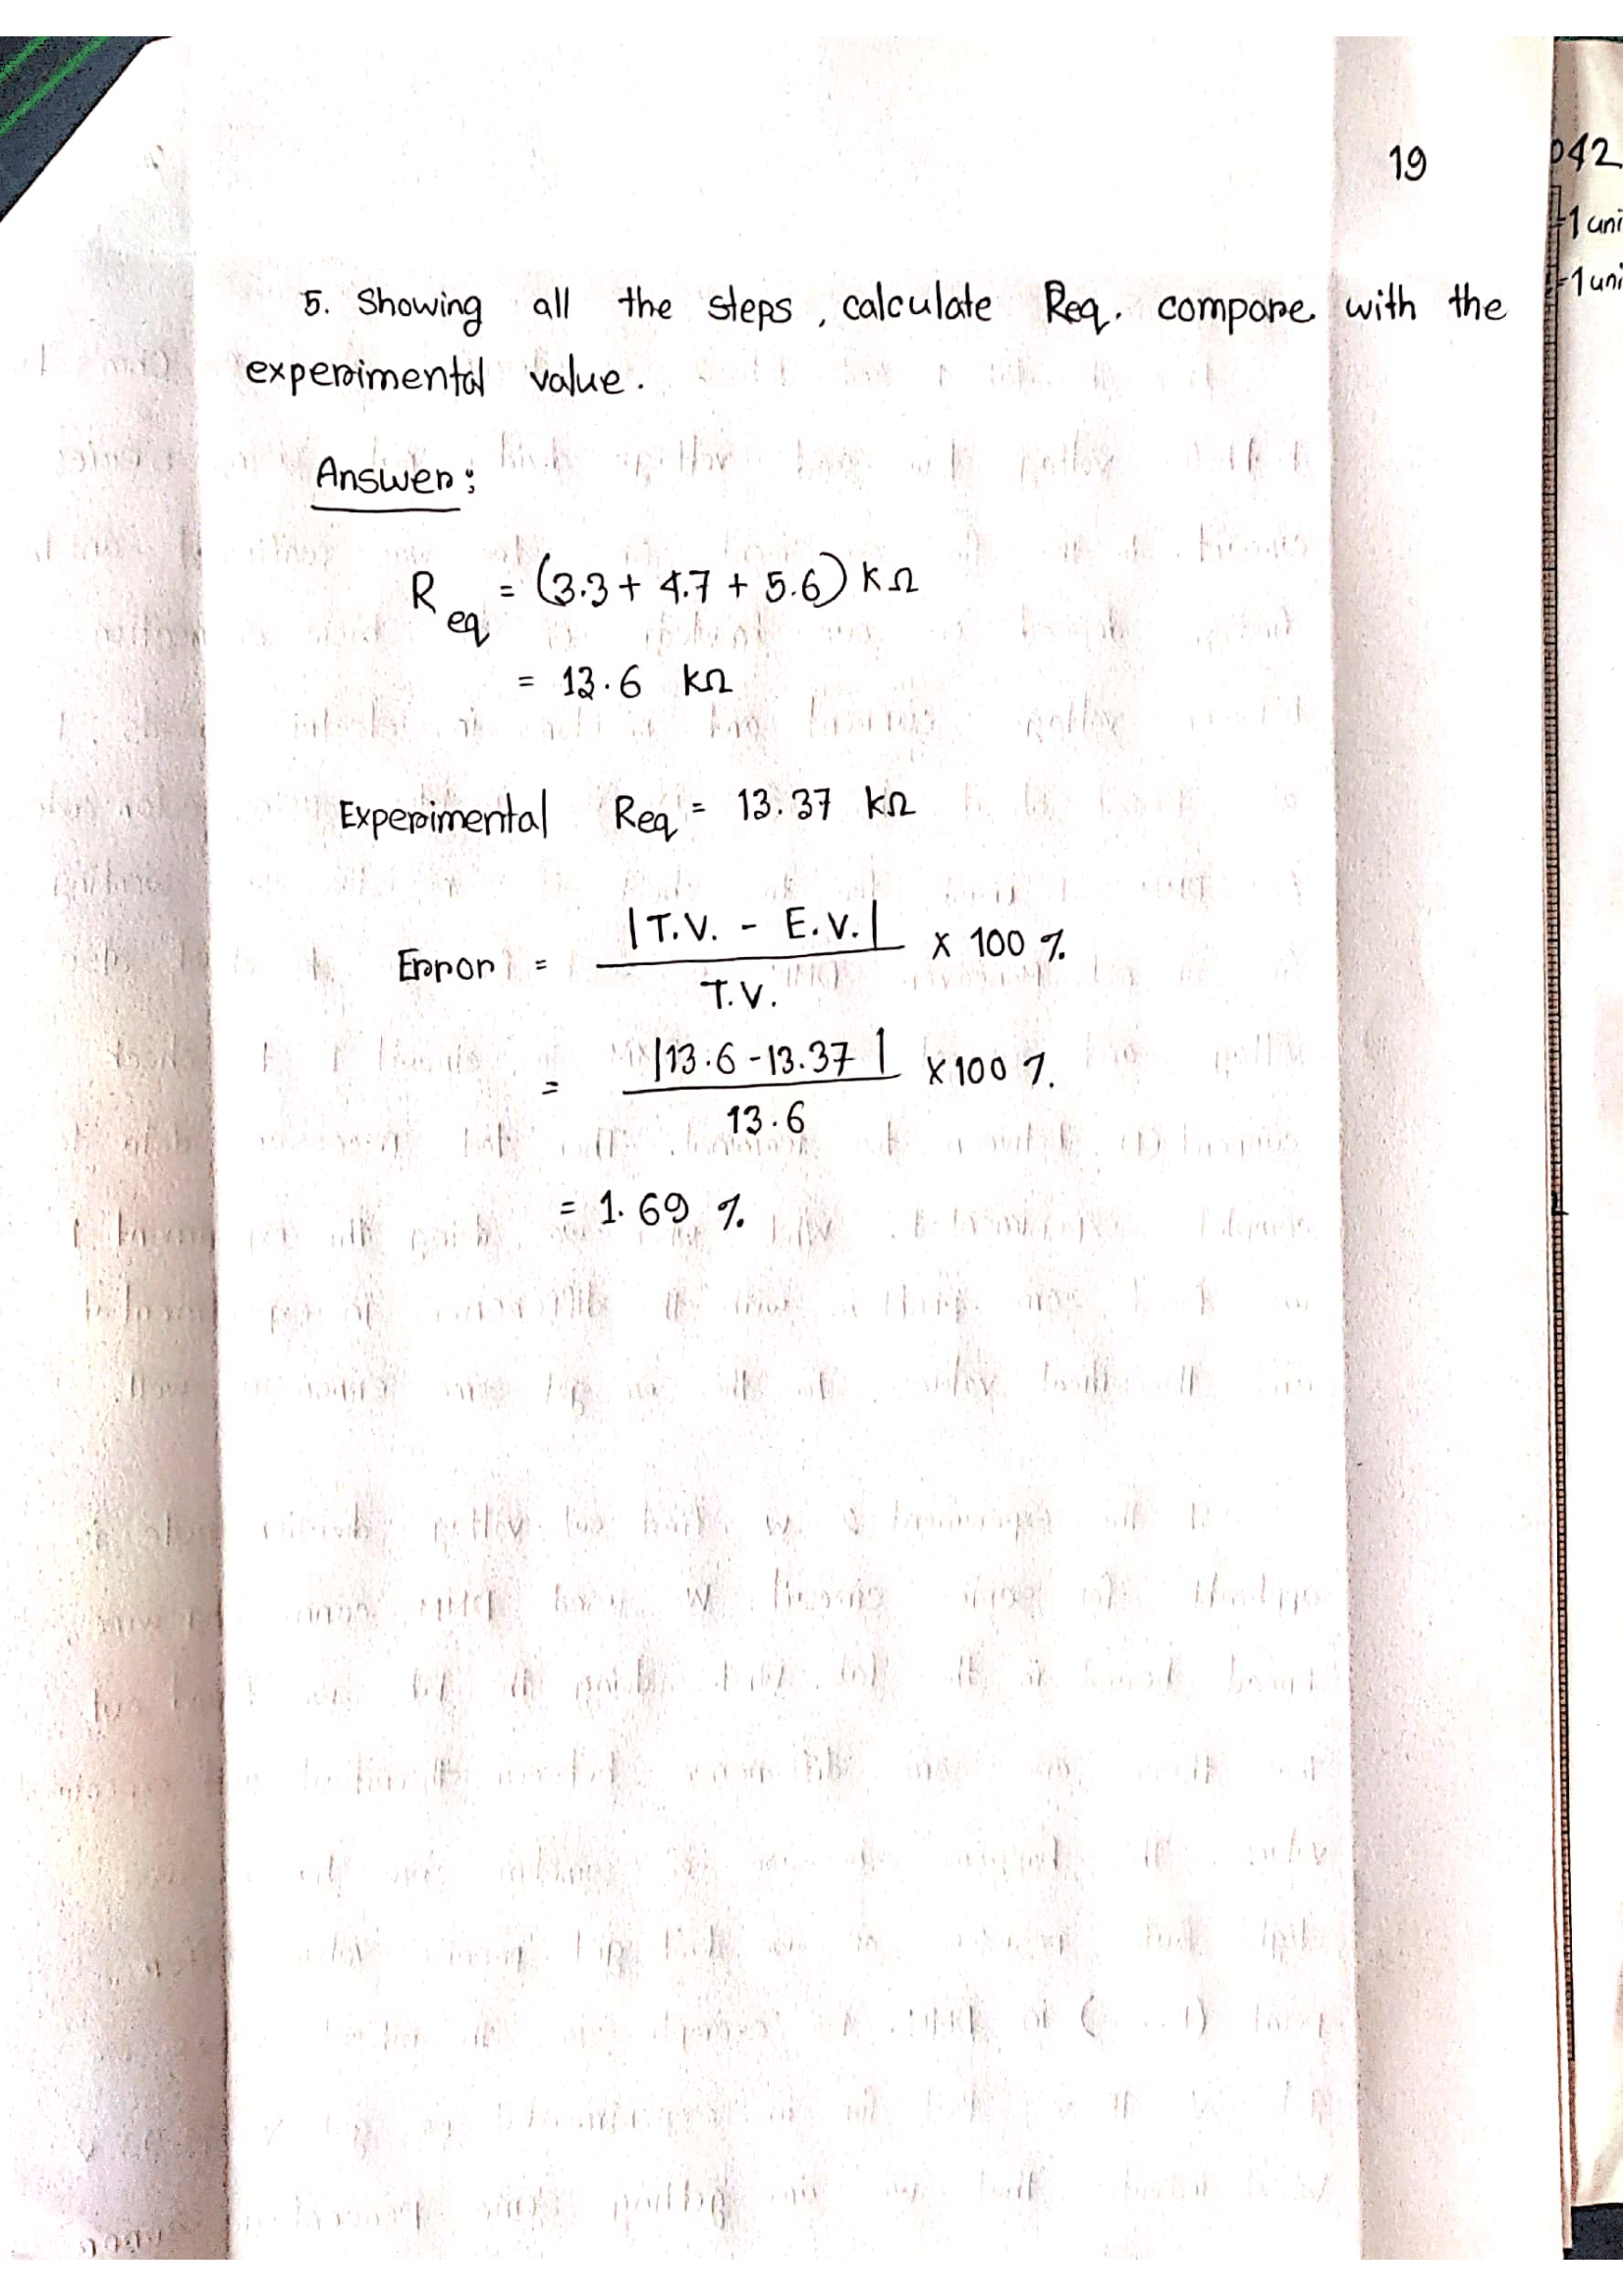 19
042
1 uni
1 uni
5. Showing all the steps, calculate Req. compare with the
experimental value.
Answer:
R_eq = (3.3 + 4.7 + 5.6) kΩ
= 13.6 kΩ
Experimental Req = 13.37 kΩ
Error = |T.V. - E.V.| / T.V. × 100 %
= |13.6 - 13.37| / 13.6 × 100 %
= 1.69 %